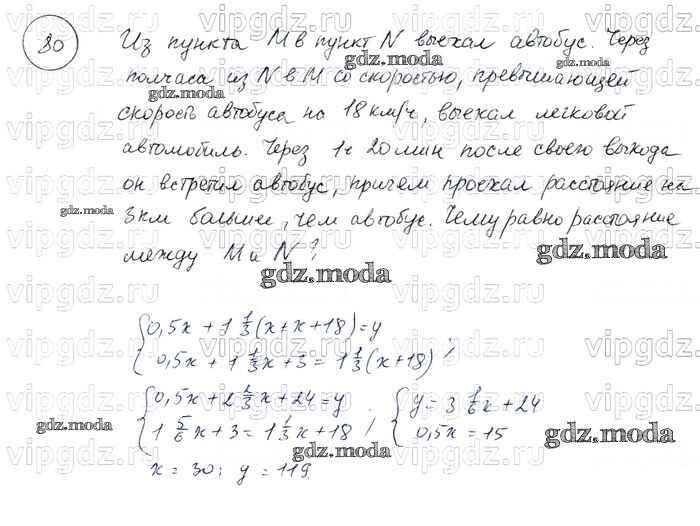 80
Из пункта M в пункт N выехал автобус. Через
полчаса из N в M со скоростью, превышающей
скорость автобуса на 18 км/ч, выехал легковой
автомобиль. Через 1ч 20 мин после своего выхода
он встретил автобус, причем проехал расстояние на
3км больше, чем автобус. Чему равно расстояние
между M и N?
gdz.moda
{0,5x + 1 1/3 (x+x+18) = y
0,5x + 1 1/3 x + 3 = 1 1/3 (x+18) ;
{0,5x + 2 2/3 x + 24 = y {y = 3 1/6 x + 24
1 5/6 x + 3 = 1 1/3 x + 18 ; 0,5x = 15
x = 30; y = 119.